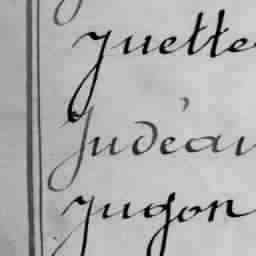 Juette
Judéau
Jugon